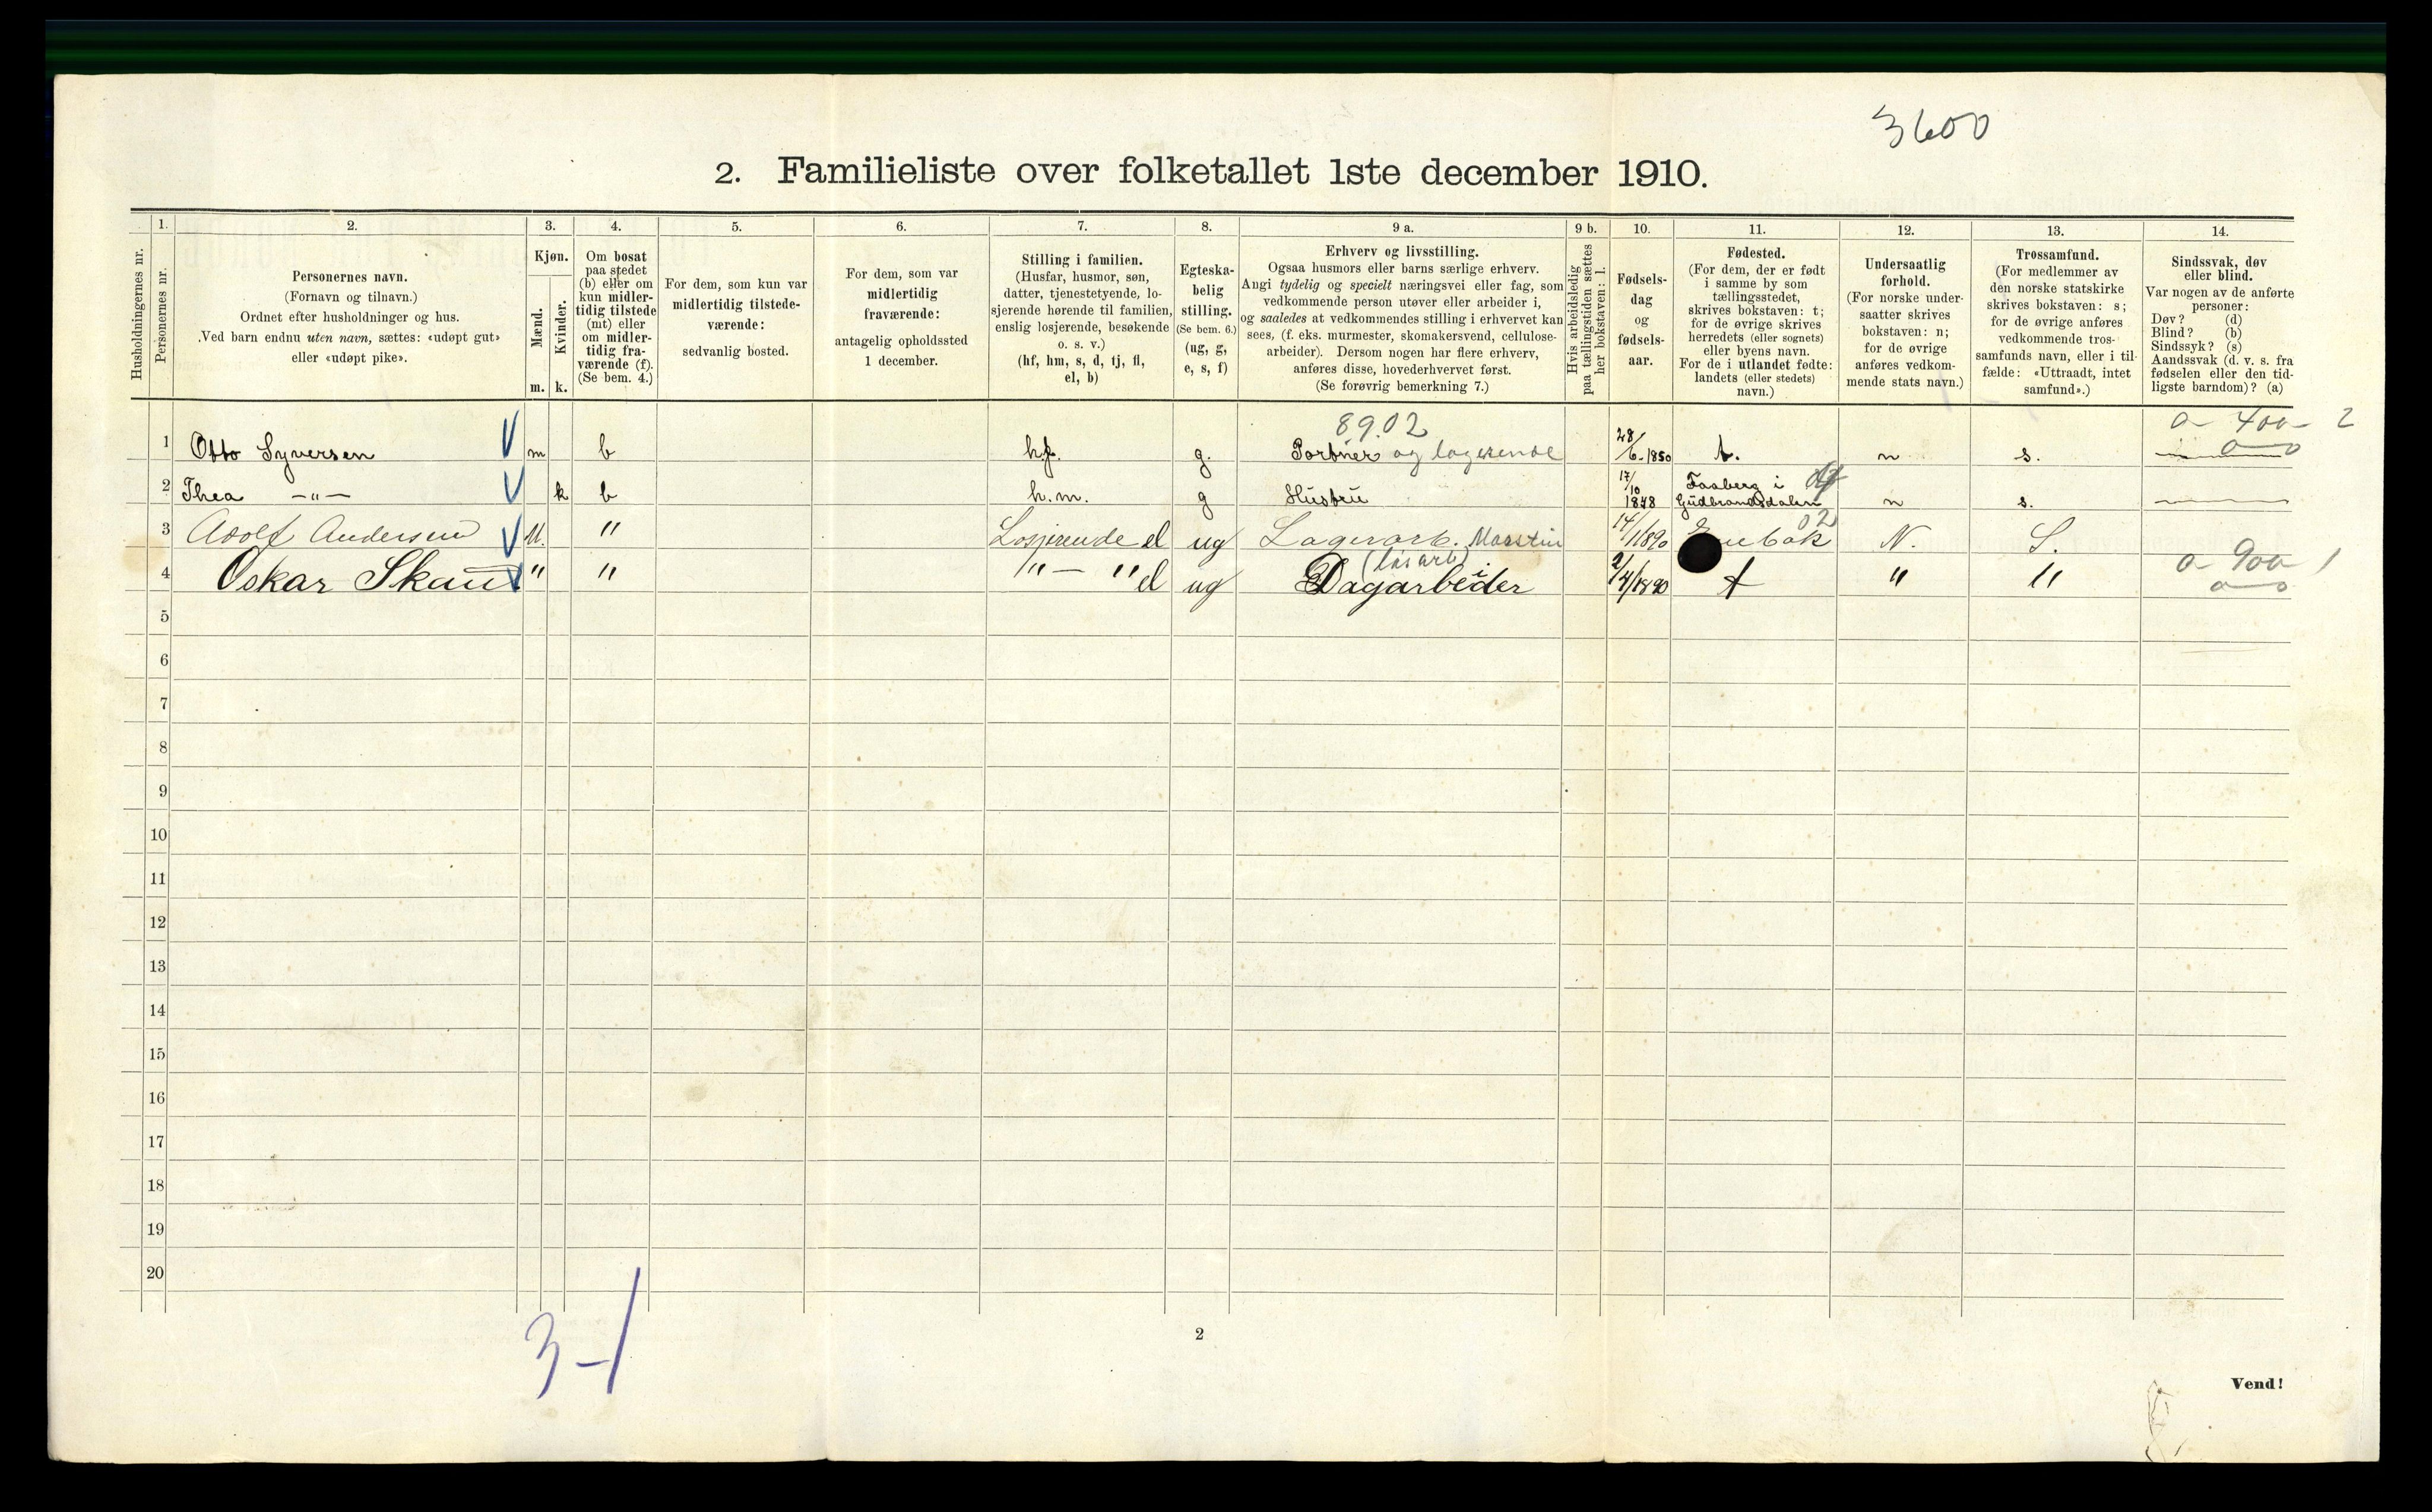 3600
2. Familieliste over folketallet 1ste december 1910.
Husholdningernes nr.
1. Personernes nr.
2.
Personernes navn.
(Fornavn og tilnavn.)
Ordnet efter husholdninger og hus.
Ved barn endnu uten navn, sættes: «udøpt gut»
eller «udøpt pike».
3.
Kjøn.
Mænd. m.
Kvinder. k.
4.
Om bosat
paa stedet
(b) eller om
kun midler-
tidig tilstede
(mt) eller
om midler-
tidig fra-
værende (f).
(Se bem. 4.)
5.
For dem, som kun var
midlertidig tilstede-
værende:
sedvanlig bosted.
6.
For dem, som var
midlertidig
fraværende:
antagelig opholdssted
1 december.
7.
Stilling i familien.
(Husfar, husmor, søn,
datter, tjenestetyende, lo-
sjerende hørende til familien,
enslig losjerende, besøkende
o. s. v.)
(hf, hm, s, d, tj, fl,
el, b)
8.
Egteska-
belig
stilling.
(Se bem. 6.)
(ug, g,
e, s, f)
9 a.
Erhverv og livsstilling.
Ogsaa husmors eller barns særlige erhverv.
Angi tydelig og specielt næringsvei eller fag, som
vedkommende person utøver eller arbeider i,
og saaledes at vedkommendes stilling i erhvervet kan
sees, (f. eks. murmester, skomakersvend, cellulose-
arbeider). Dersom nogen har flere erhverv,
anføres disse, hovederhvervet først.
(Se forøvrig bemerkning 7.)
9 b.
Hvis arbeidsledig
paa tællingstiden sættes
her bokstaven: l.
10.
Fødsels-
dag
og
fødsels-
aar.
11.
Fødested.
(For dem, der er født
i samme by som
tællingsstedet,
skrives bokstaven: t;
for de øvrige skrives
herredets (eller sognets)
eller byens navn.
For de i utlandet fødte:
landets (eller stedets)
navn.)
12.
Undersaatlig
forhold.
(For norske under-
saatter skrives
bokstaven: n;
for de øvrige
anføres vedkom-
mende stats navn.)
13.
Trossamfund.
(For medlemmer av
den norske statskirke
skrives bokstaven: s;
for de øvrige anføres
vedkommende tros-
samfunds navn, eller i til-
fælde: «Uttraadt, intet
samfund».)
14.
Sindssvak, døv
eller blind.
Var nogen av de anførte
personer:
Døv? (d)
Blind? (b)
Sindssyk? (s)
Aandssvak (d. v. s. fra
fødselen eller den tid-
ligste barndom)? (a)
89.02 0 - 400 - 2
1 Otto Syversen m b hf. g. Portner og lagerende 28/6-1850 t. n s. 0 — 0
2 Thea —"— k b h.m. g Hustru 17/10 1848 Faaberg i Gudbrandsdalen n s.
3 Adolf Andersen M. " Losjerende el ug Lagerarb. 14/1 1890 02 N. S.
0 - 900 1
4 Oskar " " " — " el ug Dagarbeider 2/4/1890 t " " 0 — 0
5
6
7
8
9
10
11
12
13
14
15
16
17
18
19
20
3-1
2
Vend!